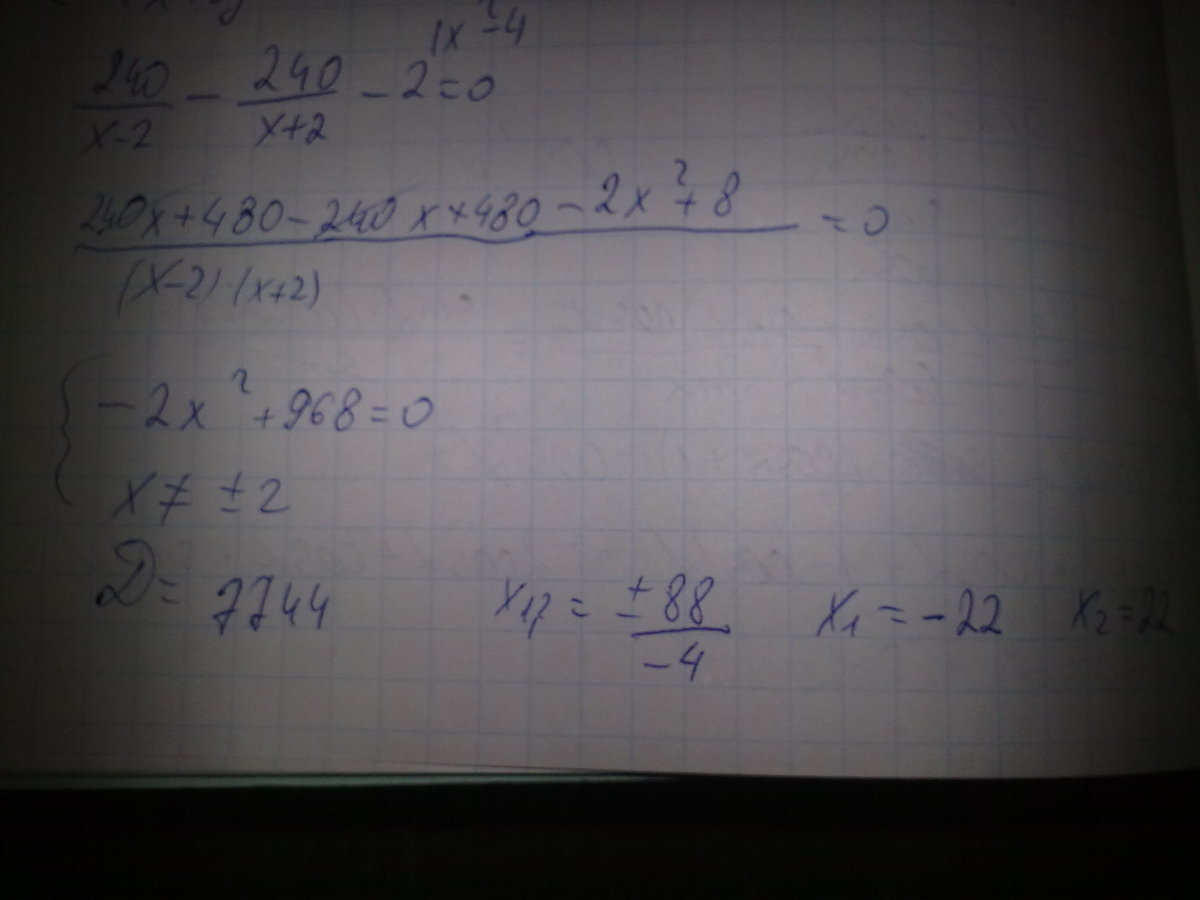 |x²-4
240/(x-2) - 240/(x+2) - 2 = 0
(240x+480-240x+480-2x²+8)/((x-2)·(x+2)) = 0
{ -2x²+968=0
x ≠ ±2
D= 7744 x₁,₂ = ±88/-4 x₁ = -22 x₂=22